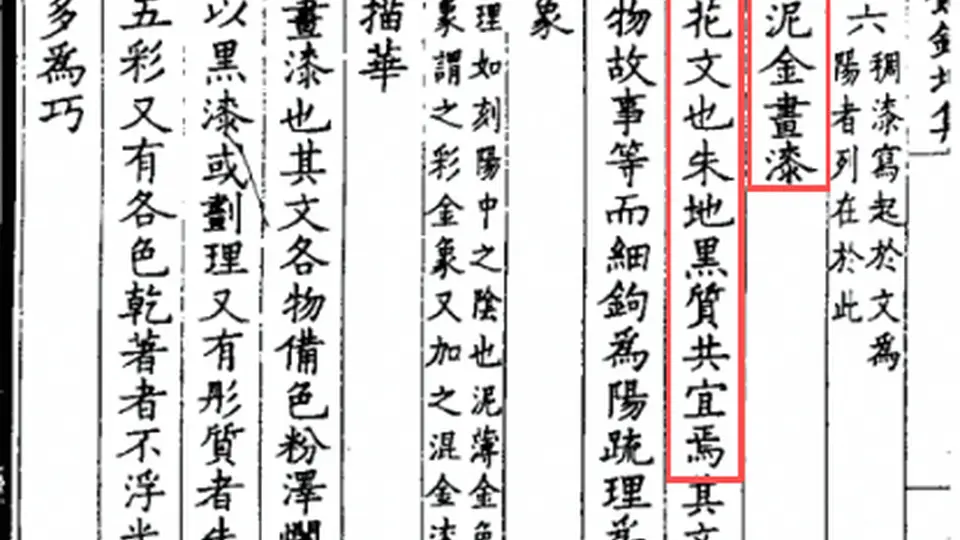 六
稠漆寫起於文為
陽者列在於此
泥金畫漆
花文也朱地黑質共宜焉其文
物故事等而細鉤為陽疏理為
象
理如刻陽中之陰也泥薄金色
象謂之彩金象又加之混金漆
描華
畫漆也其文各物備色粉澤爛
以黑漆或劃理又有彤質者先
五彩又有各色乾著者不浮光
多為巧